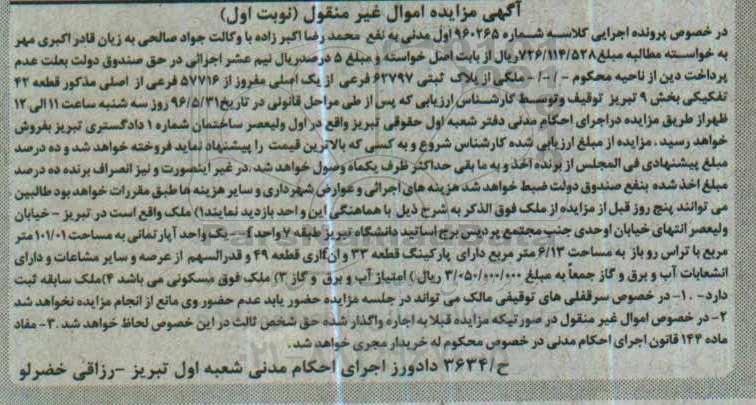 آگهی مزایده اموال غیر منقول (نوبت اول)
در خصوص پرونده اجرایی کلاسه شماره ۹۶۰۲۶۵ اول مدنی به نفع محمد رضا اکبر زاده با وکالت جواد صالحی به زیان قادر اکبری مهر
به خواسته مطالبه مبلغ ۷۲۶/۱۱۴/۵۲۸ ریال از بابت اصل خواسته و مبلغ ۵ درصد ریال نیم عشر اجرائی در حق صندوق دولت بعلت عدم
پرداخت دین از ناحیه محکوم -/-/- ملکی از پلاک ثبتی ۶۲۷۹۷ فرعی از یک اصلی مفروز از ۵۷۷۱۶ فرعی از اصلی مذکور قطعه ۴۲
تفکیکی بخش ۹ تبریز توقیف وتوسط کارشناس ارزیابی که پس از طی مراحل قانونی در تاریخ ۹۶/۵/۳۱ روز سه شنبه ساعت ۱۱ الی ۱۲
ظهر از طریق مزایده دراجرای احکام مدنی دفتر شعبه اول حقوقی تبریز واقع در اول ولیعصر ساختمان شماره ۱ دادگستری تبریز بفروش
خواهد رسید. مزایده از مبلغ ارزیابی شده کارشناس شروع و به کسی که بالاترین قیمت را پیشنهاد نماید فروخته خواهد شد و ده درصد
مبلغ پیشنهادی فی المجلس از برنده اخذ و به ما بقی حداکثر ظرف یکماه وصول خواهد شد، در غیر اینصورت و نیز انصراف برنده ده درصد
مبلغ اخذ شده بنفع صندوق دولت ضبط خواهد شد هزینه های اجرائی و عوارض شهرداری و سایر هزینه ها طبق مقررات خواهد بود طالبین
می توانند پنج روز قبل از مزایده از ملک فوق الذکر به شرح ذیل با هماهنگی این واحد بازدید نمایند ۱) ملک واقع است در تبریز - خیابان
ولیعصر انتهای خیابان اوحدی جنب مجتمع پردیس برج اساتید دانشگاه تبریز طبقه ۷ واحد یک واحد آپارتمانی به مساحت ۱۰۱/۰۱ متر
مربع با تراس رو باز به مساحت ۶/۱۳ متر مربع دارای پارکینگ قطعه ۳۳ و انباری قطعه ۴۹ و قدرالسهم از عرصه و سایر مشاعات و دارای
انشعابات آب و برق و گاز جمعاً به مبلغ ۳/۰۵۰/۰۰۰/۰۰۰ ریال) امتیاز آب و برق و گاز ۳) ملک فوق مسکونی می باشد ۴) ملک سابقه ثبت
دارد- ۱- در خصوص سرقفلی های توقیفی مالک می تواند در جلسه مزایده حضور یابد عدم حضور وی مانع از انجام مزایده نخواهد شد
۲- در خصوص اموال غیر منقول در صورتیکه مزایده قبلا به اجاره واگذار شده حق شخص ثالث در این خصوص لحاظ خواهد شد. ۳- مفاد
ماده ۱۴۴ قانون اجرای احکام مدنی در خصوص محکوم له خریدار مجری خواهد شد.
ح/۳۶۳۴ دادورز اجرای احکام مدنی شعبه اول تبریز - رزاقی خضرلو